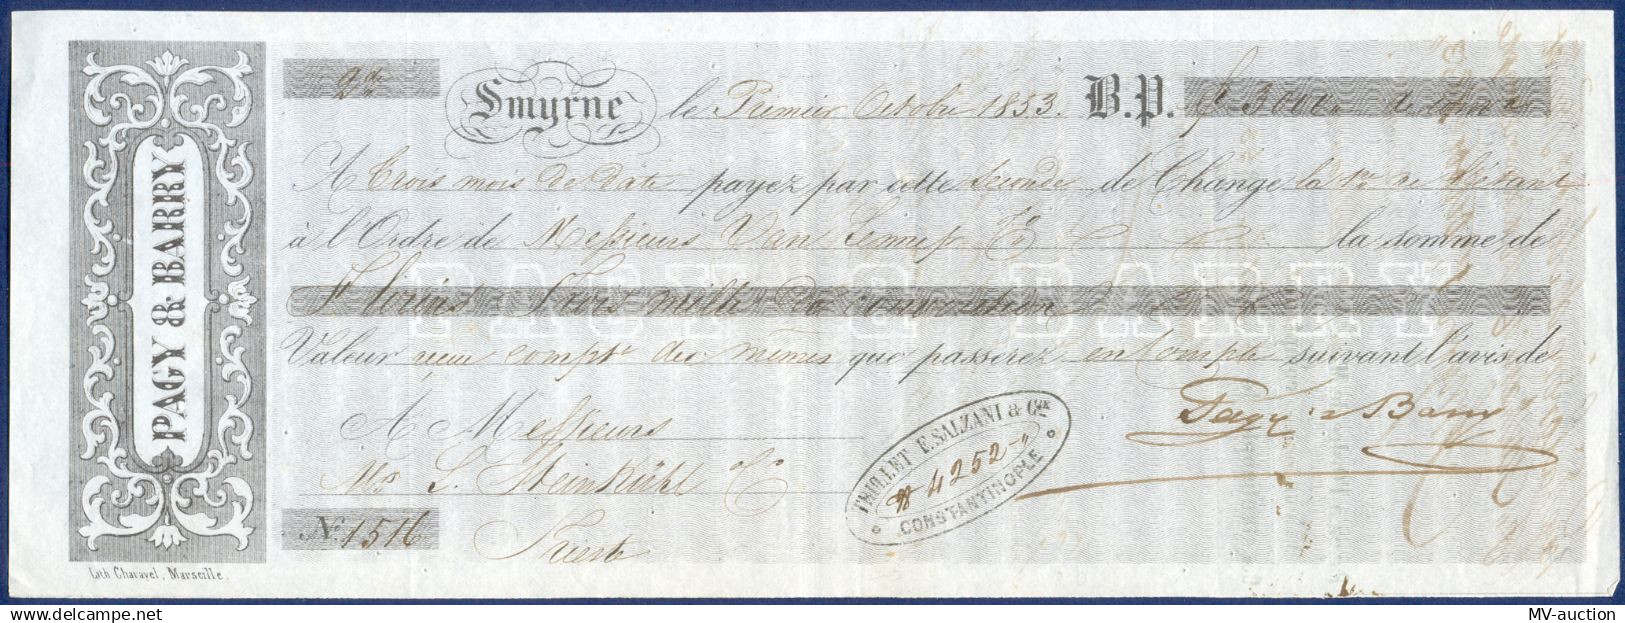 PAGY & BARRY
2de
Smyrne le Premier Octobre 1853. B.P. f 3000
A trois mois de date payez par cette seconde de Change la 1re ne l'étant
à l'Ordre de Messieurs Van Lennep & Co la somme de
PAGY & BARRY
Florins Trois mille de convention
Valeur reçue compte des mêmes que passerez en Compte suivant l'avis de
A Messieurs
Pagy & Barry
THUILLET E. SALZANI & Cie
4252
CONSTANTINOPLE
Steinkühl & Co
No. 1516
Trieste
Lith Charavel, Marseille.
MV-auction